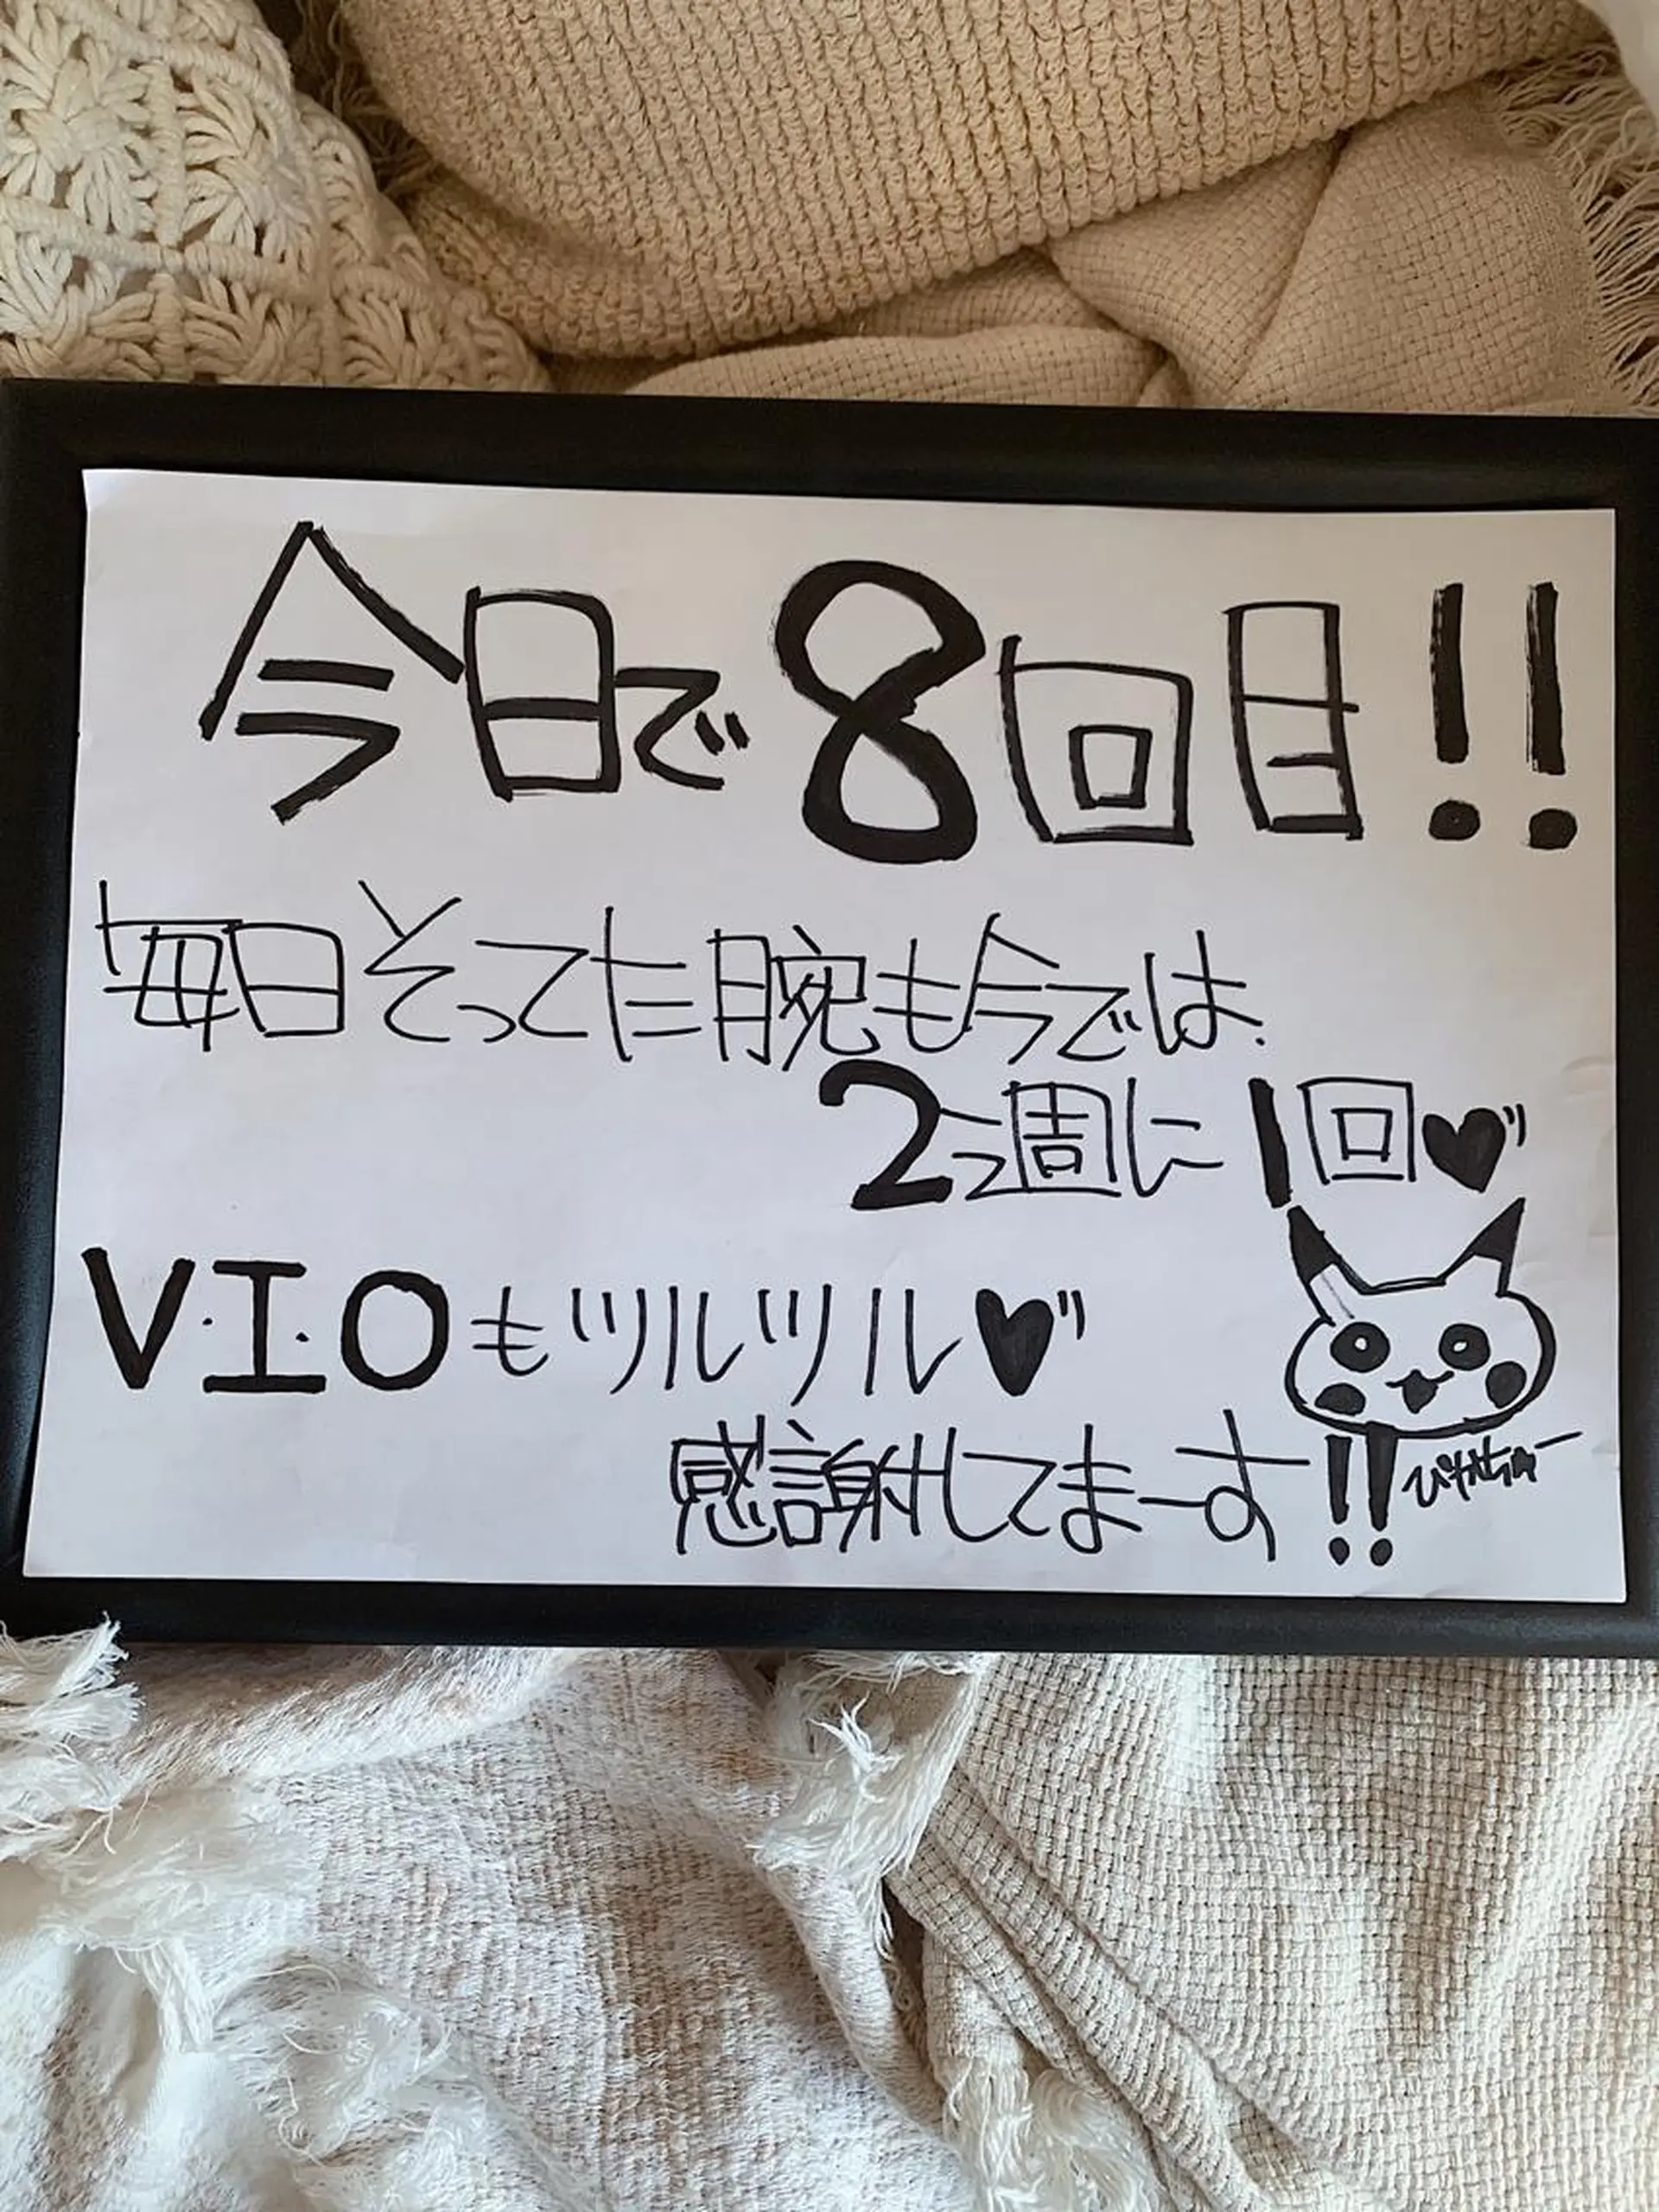 今日で8回目!!
毎日そってた腕も今では、
2週に1回♥
V・I・Oもツルツル♥
感謝してまーす!!
ぴかちゅー